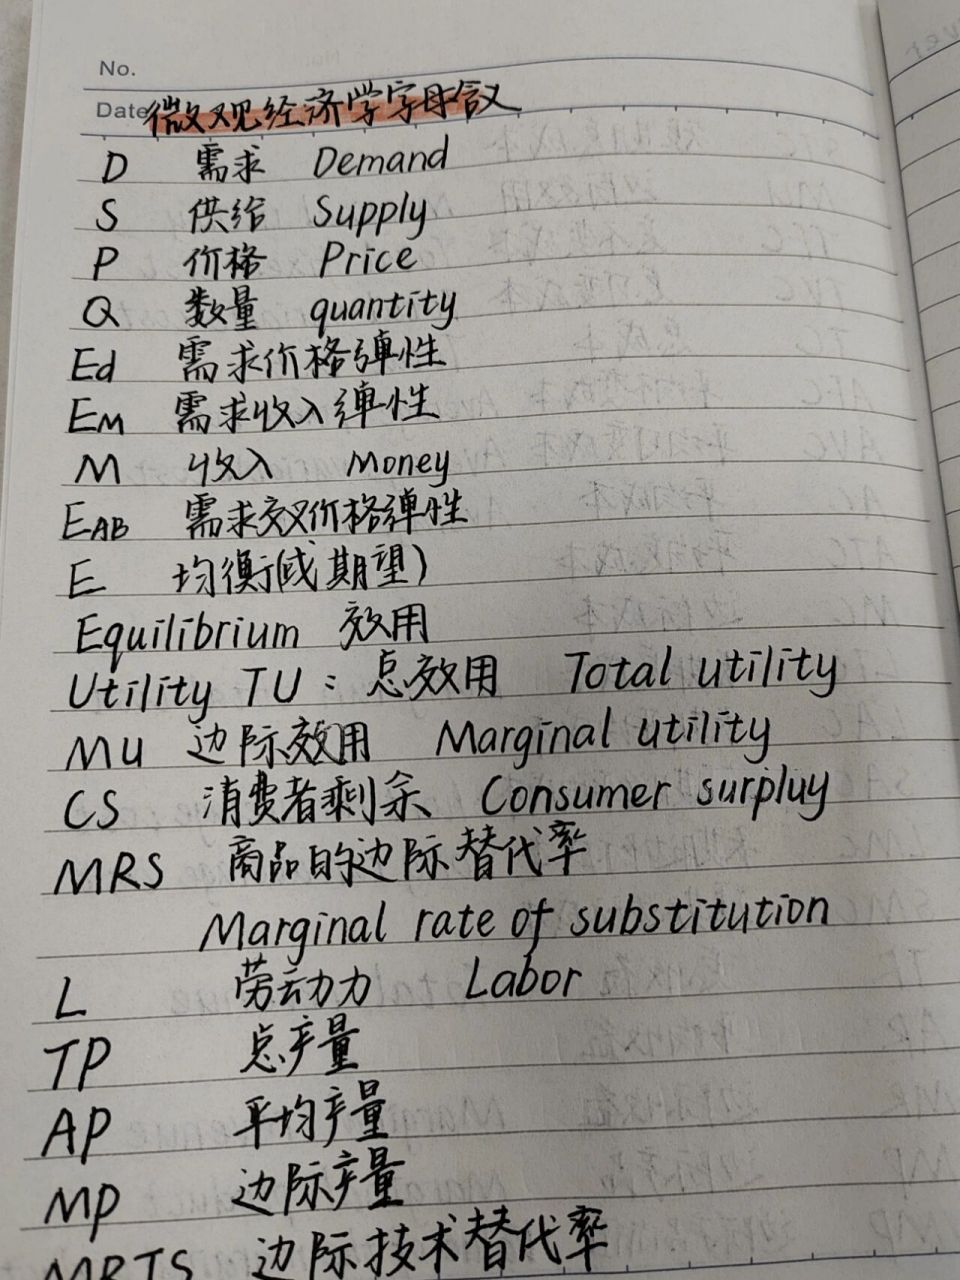 No.
Date 微观经济学字母含义
D 需求 Demand
S 供给 Supply
P 价格 Price
Q 数量 quantity
Ed 需求价格弹性
EM 需求收入弹性
M 收入 Money
EAB 需求交叉价格弹性
E 均衡(或期望)
Equilibrium 效用
Utility TU: 总效用 Total utility
MU 边际效用 Marginal utility
CS 消费者剩余 Consumer surpluy
MRS 商品的边际替代率
Marginal rate of substitution
L 劳动力 Labor
TP 总产量
AP 平均产量
MP 边际产量
MRTS 边际技术替代率